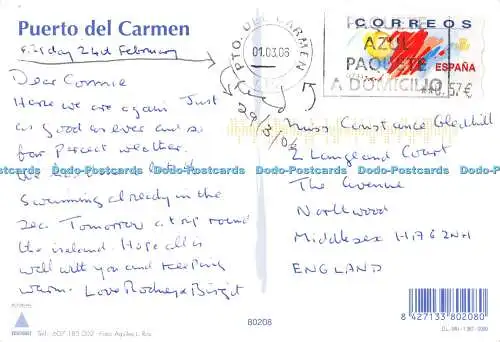 Puerto del Carmen
Friday 24th February
Dear Connie
Here we are again. Just
as good as ever and so
far perfect weather.
We
Swimming already in the
sea. Tomorrow a trip round
the island. Hope all is
well with you and keeping
warm. Love Rodney & Birgit
PTO. DEL CARMEN
01.03.06
29/3/06
CORREOS
AZUL
PAQUETE
A DOMICILIO
ESPAÑA
0,57€
Miss Constance Gledhill
2 Langland Court
The Avenue
Northwood
Middlesex HA6 2NH
ENGLAND
Dodo-Postcards Dodo-Postcards Dodo-Postcards Dodo-Postcards Dodo-Postcards Dodo-Postcards
80208
8 427133 802080